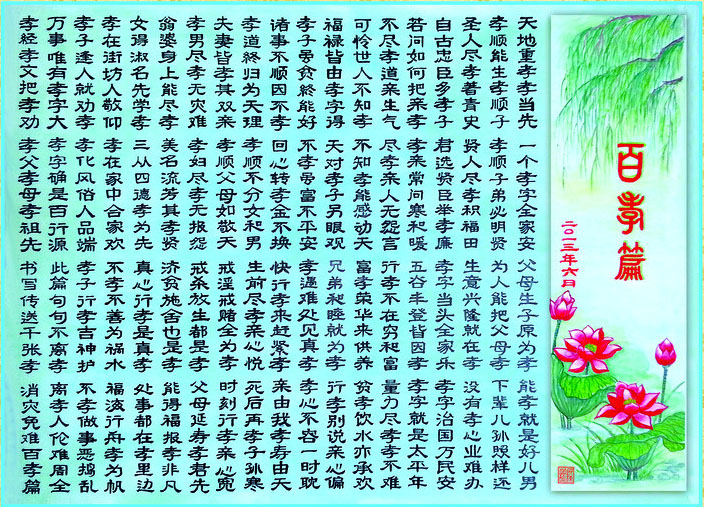 百孝篇
二〇一三年六月
天地重孝孝当先 一个孝字全家安 父母生子原为孝 能孝就是好儿男
孝顺能生孝顺子 孝顺子弟必明贤 为人能把父母孝 下辈儿孙照样还
圣人尽孝着青史 贤人尽孝积福田 生意兴隆就在孝 没有孝心业难办
自古忠臣多孝子 君选贤臣举孝廉 孝字当头全家乐 孝字治国万民安
若问如何把亲孝 孝亲常问寒和暖 五谷丰登皆因孝 孝字就是太平年
不尽孝道亲生气 尽孝亲人无怨言 行孝不在穷和富 量力尽孝孝不难
可怜世人不知孝 不知孝能感动天 富孝荣华来供养 贫孝饮水亦承欢
福禄皆由孝字得 天对孝子另眼观 兄弟和睦就为孝 行孝别说亲心偏
孝子虽贫终能好 不孝虽富不平安 孝遇难处见真孝 孝心不容一时耽
诸事不顺因不孝 回心转孝金不换 快行孝来赶紧孝 亲由我孝寿由天
孝道终归为天理 孝顺不分女和男 生前尽孝亲心悦 死后再孝子孙寒
夫妻皆孝其双亲 孝顺父母如敬天 戒淫戒赌全为孝 时刻行孝亲心宽
孝男尽孝无灾难 孝妇尽孝无报怨 戒杀放生都是孝 父母延寿孝君先
翁婆身上能尽孝 美名流芳其孝贤 济贫施舍也是孝 能得福报孝非凡
女得淑名先学孝 三从四德孝为先 真心行孝是真孝 处事都在孝里边
孝在街坊人敬仰 孝在家中合家欢 不孝不善为祸水 福海行舟孝为帆
孝子逢人就劝孝 孝化风俗人品端 孝子行孝吉神护 不孝做事恶捣乱
万事唯有孝字大 孝字确是百行源 此篇句句不离孝 离孝人伦难周全
孝经孝文把孝劝 孝父孝母孝祖先 书写传送千张孝 消灾免难百孝篇